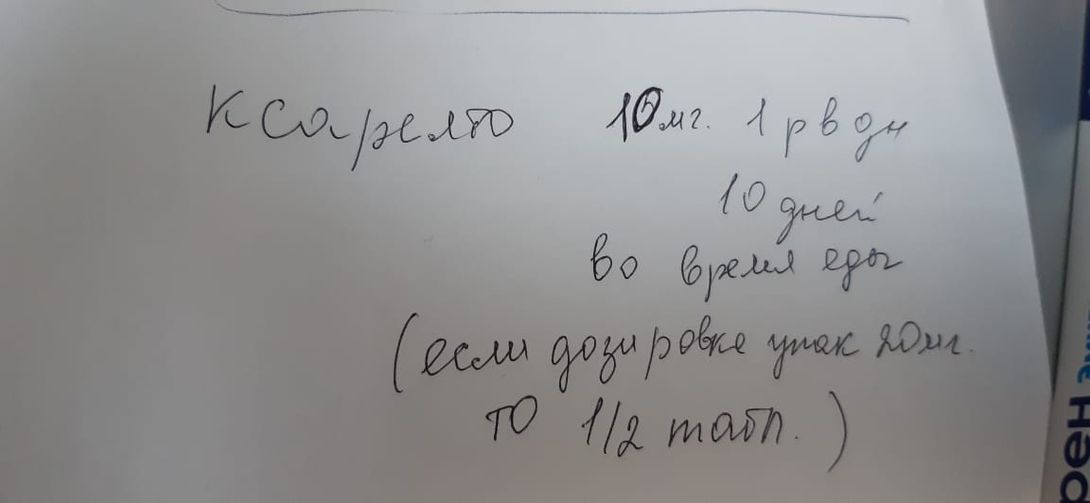 Ксарелто 10мг. 1 р в дн
10 дней
во время еды
(если дозировке упак 20мг.
то 1/2 табл.)